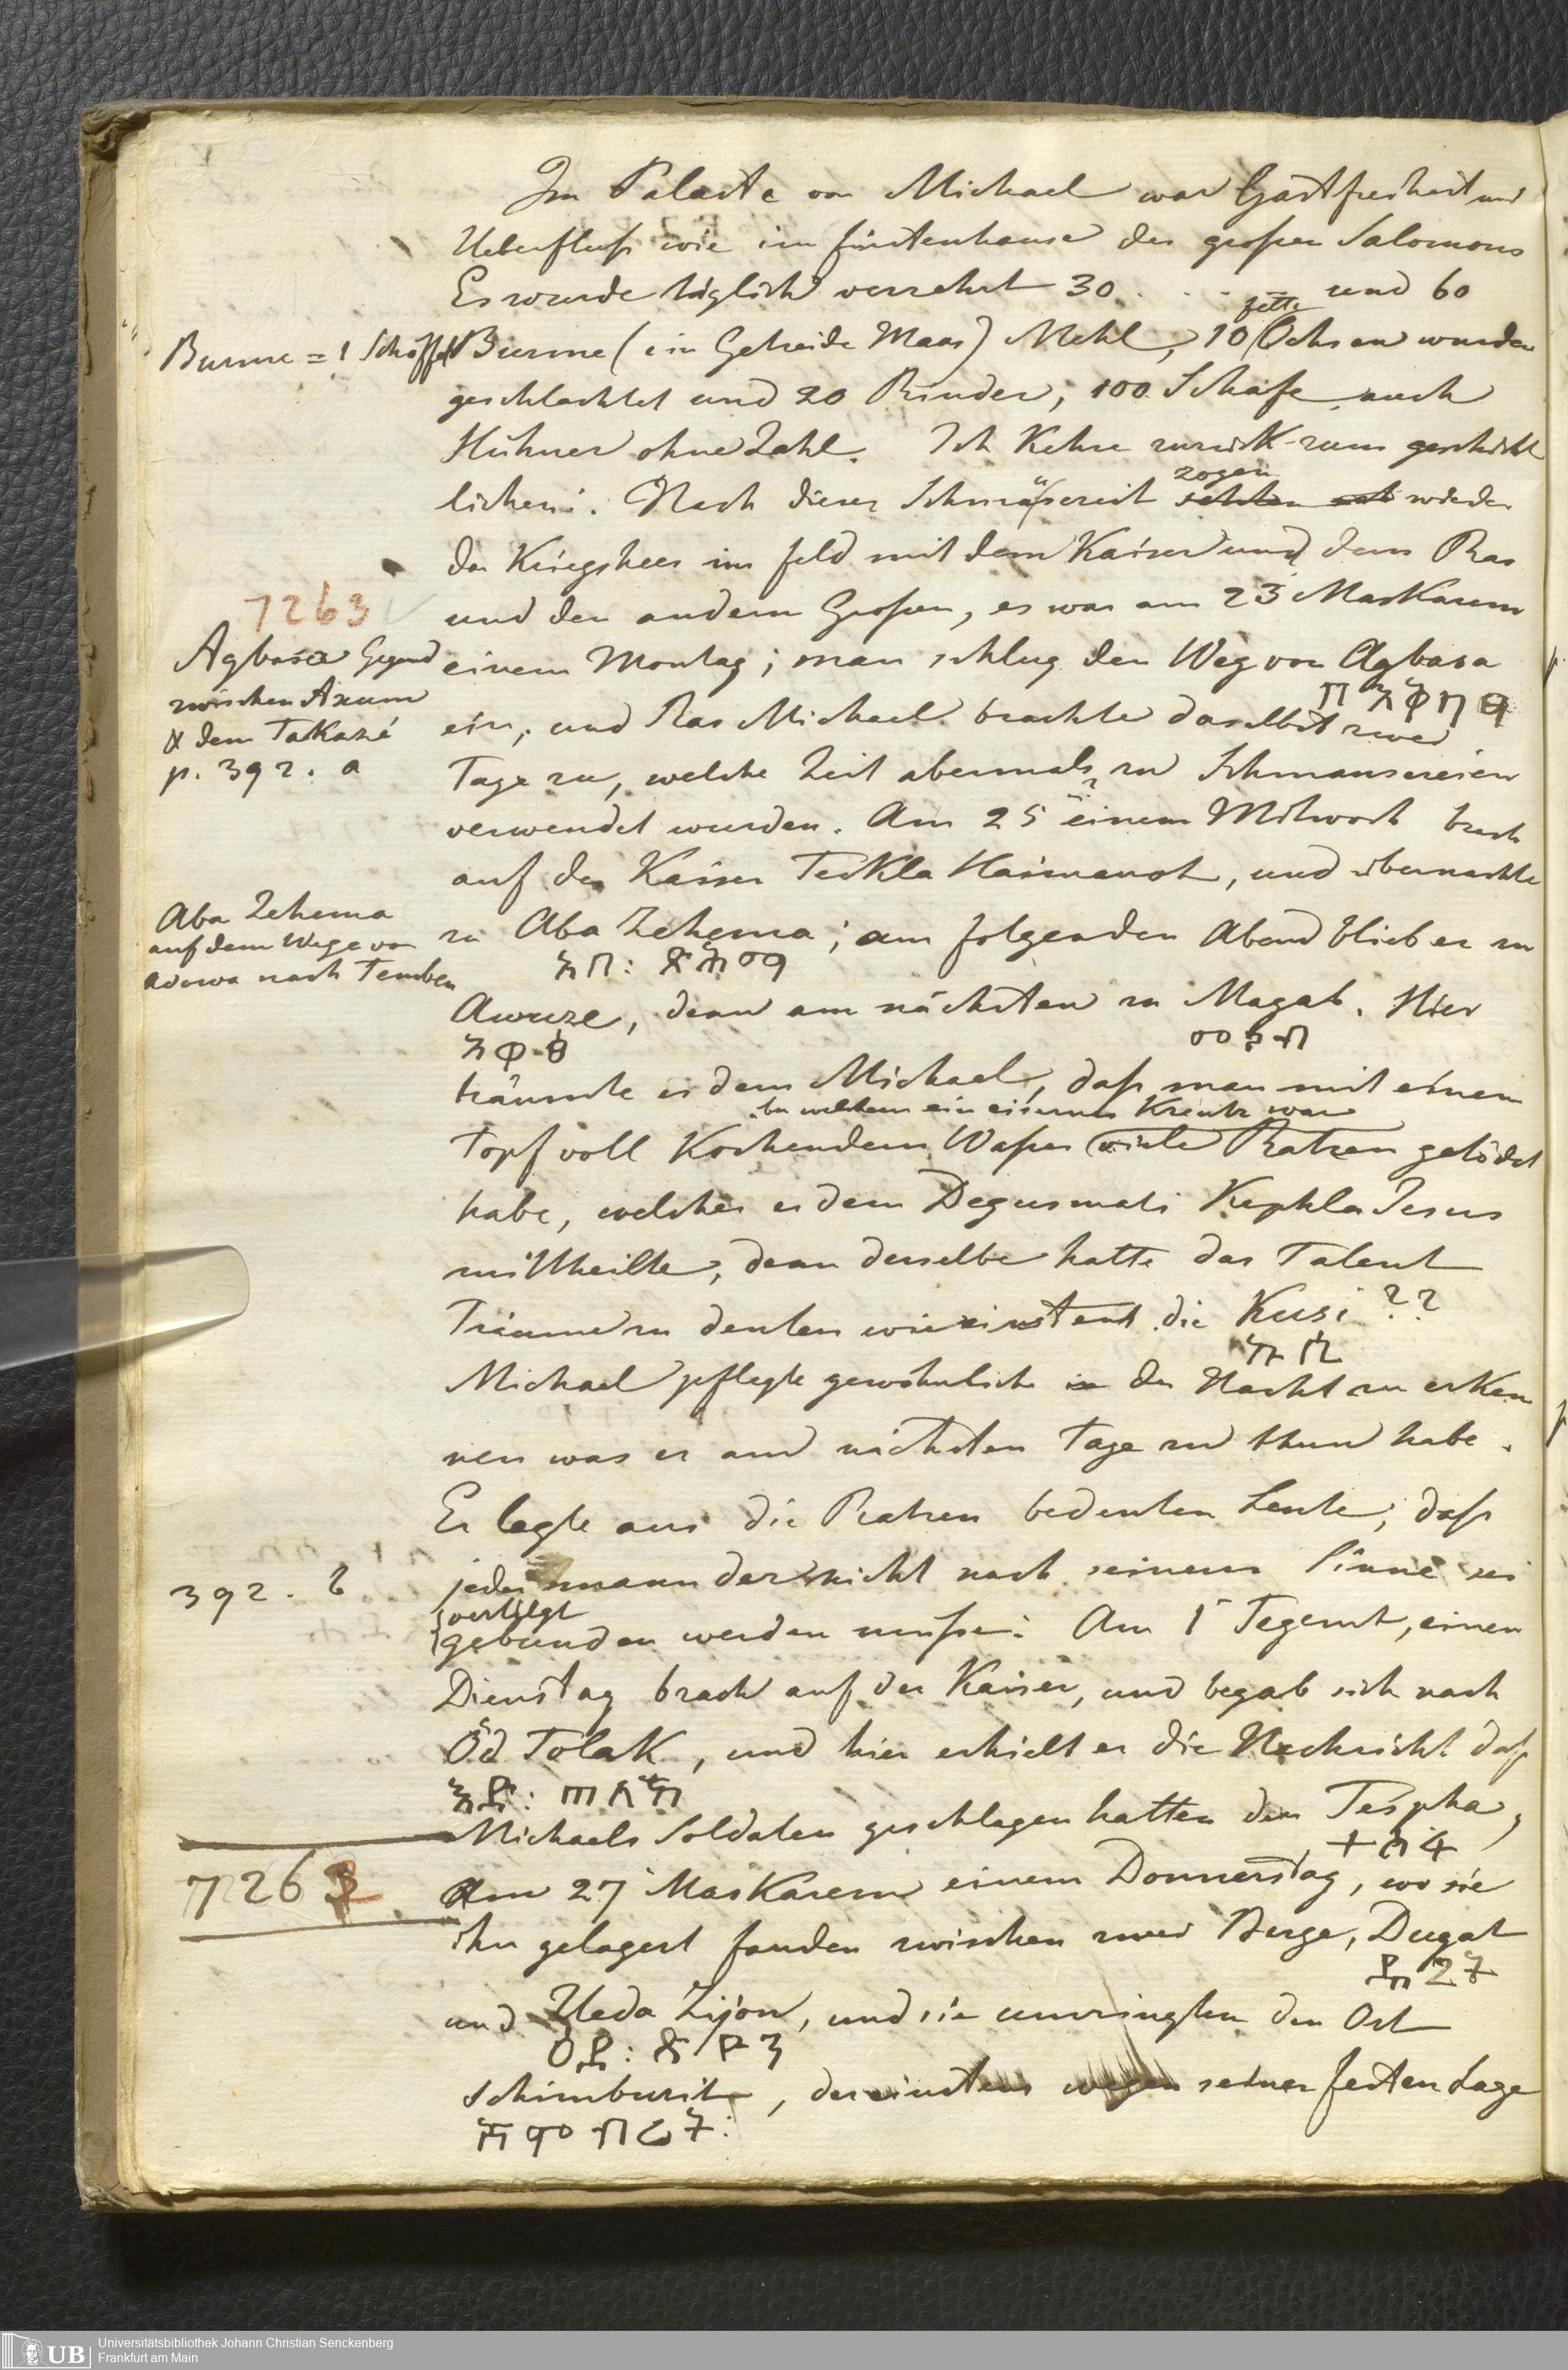 Im Palaste von Michael war Gastfreiheit und
Ueberfluß wie im fürstenhause des großen Salomons
Es wurde täglich verzehrt 30 . . . . und 60
fette
Burme = 1 Schöffel
Burme (ein Getreide Maas) Mehl, 10 Ochsen wurden
geschlachtet und 20 Rinder, 100 Schafe auch
Hühner ohne Zahl. Ich Kehre zurück zum geschicht
zogen
lichen. Nach dieser Schmäuserei wieder
das Kriegsheer im feld mit dem Kaiser und dem Ras
7263
und den andern Großen, es war am 23 Maskarem
Agbasa Gegend
zwischen Axum
& dem Takazé
p. 392. a
einem Montag; man schlug den Weg von Agbasa
ein, und Ras Michael brachte daselbst zwei
Tage zu, welche Zeit abermals zu Schmausereien
verwendet wurden. Am 25 einem Mitwoch brach
auf der Kaiser Teckla Haimanot, und übernachte
Aba Zehema
auf dem Wege von
Adowa nach Temben
zu Aba Zehema; am folgenden Abend blieb er zu
አባ: ጽሕማ
Awuze, dann am nächsten zu Magab. Hier
träumte es dem Michael, daß man mit einem
in welchem ein eisernes Kreutz war
Topf voll Kochendem Waßer viele Ratzen getödet
habe, welches er dem Degusmati Kephla Jesus
mittheilte, denn derselbe hatte das Talent
Träume zu deuten wie einstens die Kusi ??
ኩሲ
Michael pflegte gewöhnlich in der Nacht zu erken
nen was er am nächsten Tage zu thun habe.
Er legte aus die Ratzen bedeuten Leute, daß
392. b
jederman der nicht nach seinem Sinne sei
vertilgt
gebunden werden müße. Am 1 Tegemt, einen
Dienstag brach auf der Kaiser, und begab sich nach
Öd Tolak, und hier erhielt er die Nachricht daß
Michaels Soldaten geschlagen hatten den Tespha,
ተስፋ
7263
Am 27 Maskarem einem Donnerstag, wo sie
ihn gelagert fanden zwischen zwei Berge, Dugat
ዱጋት
und Ueda Zijon, und sie umringten den Ort
ዖዳ: ጽዮን
Schimburit, der einstens wegen seiner festen Lage
ሽምብሪት:
Universitätsbibliothek Johann Christian Senckenberg
Frankfurt am Main
UB